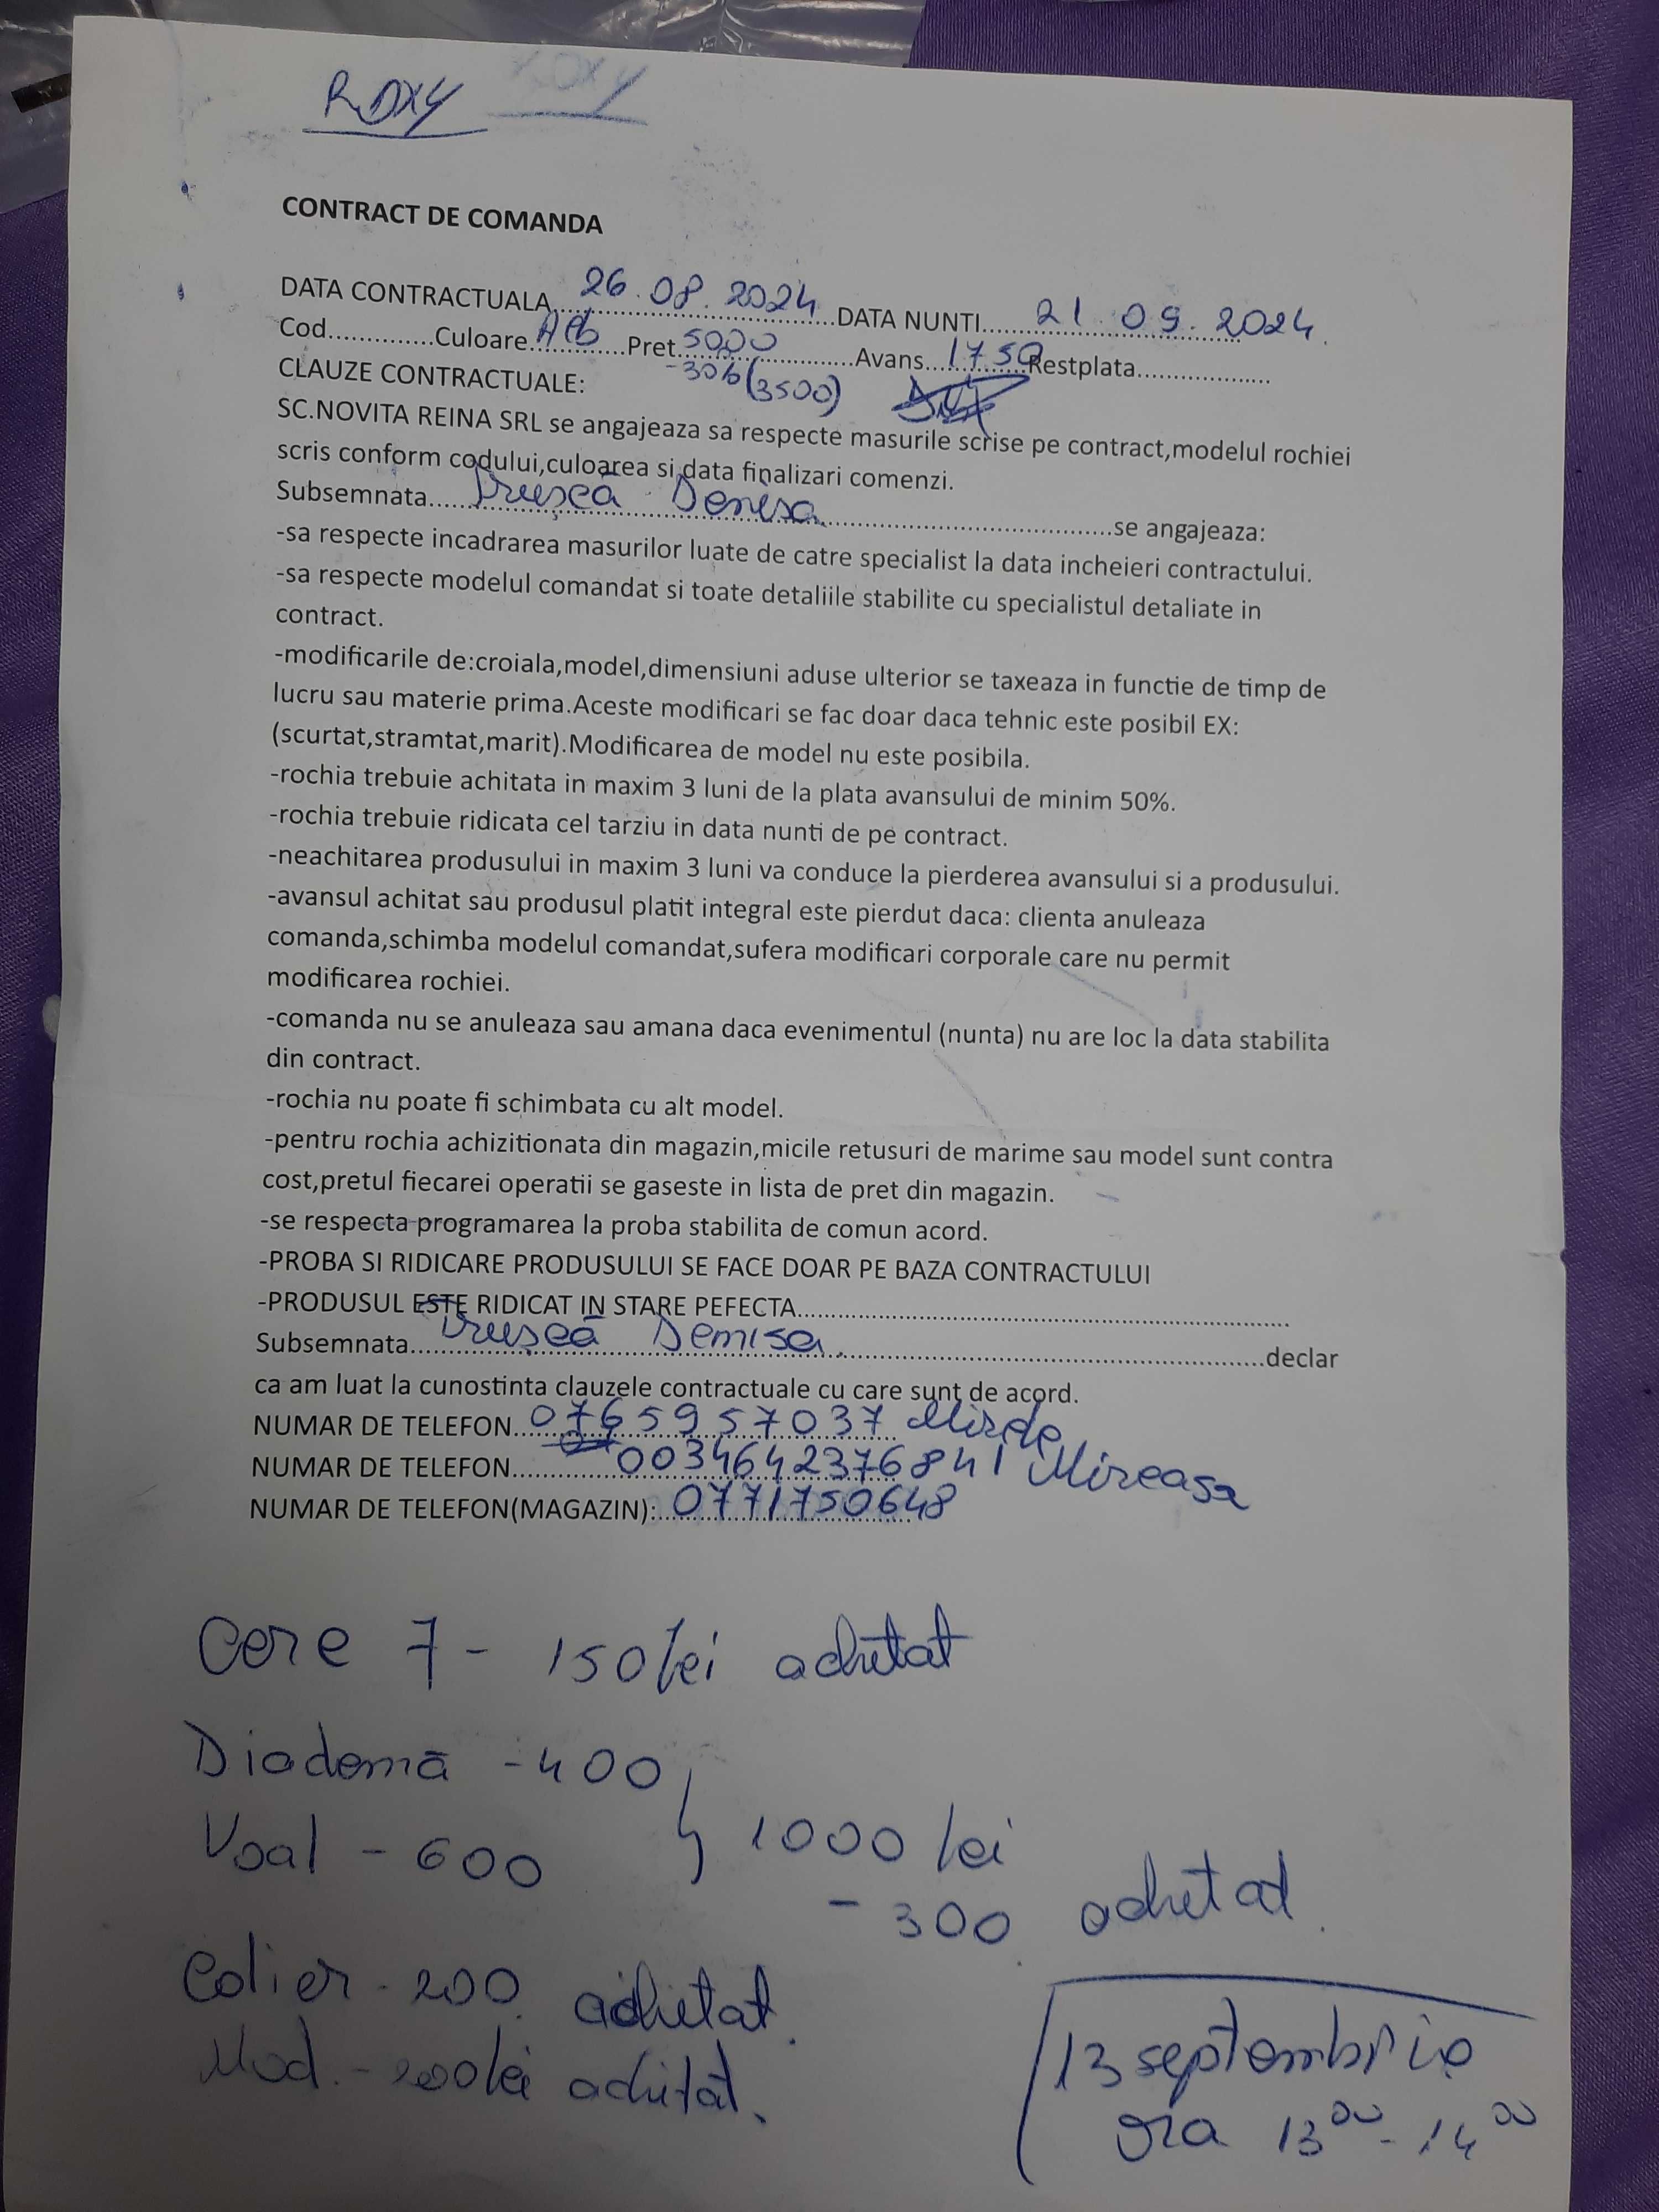 ROXY ROXY
CONTRACT DE COMANDA
DATA CONTRACTUALA 26.08.2024 DATA NUNTI 21.09.2024
Cod..............Culoare Alb Pret 5000 Avans 1750 Restplata...................
-30% (3500)
CLAUZE CONTRACTUALE:
SC.NOVITA REINA SRL se angajeaza sa respecte masurile scrise pe contract,modelul rochiei
scris conform codului,culoarea si data finalizari comenzi.
Subsemnata Drușcă Denisa se angajeaza:
-sa respecte incadrarea masurilor luate de catre specialist la data incheieri contractului.
-sa respecte modelul comandat si toate detaliile stabilite cu specialistul detaliate in
contract.
-modificarile de:croiala,model,dimensiuni aduse ulterior se taxeaza in functie de timp de
lucru sau materie prima.Aceste modificari se fac doar daca tehnic este posibil EX:
(scurtat,stramtat,marit).Modificarea de model nu este posibila.
-rochia trebuie achitata in maxim 3 luni de la plata avansului de minim 50%.
-rochia trebuie ridicata cel tarziu in data nunti de pe contract.
-neachitarea produsului in maxim 3 luni va conduce la pierderea avansului si a produsului.
-avansul achitat sau produsul platit integral este pierdut daca: clienta anuleaza
comanda,schimba modelul comandat,sufera modificari corporale care nu permit
modificarea rochiei.
-comanda nu se anuleaza sau amana daca evenimentul (nunta) nu are loc la data stabilita
din contract.
-rochia nu poate fi schimbata cu alt model.
-pentru rochia achizitionata din magazin,micile retusuri de marime sau model sunt contra
cost,pretul fiecarei operatii se gaseste in lista de pret din magazin.
-se respecta programarea la proba stabilita de comun acord.
-PROBA SI RIDICARE PRODUSULUI SE FACE DOAR PE BAZA CONTRACTULUI
-PRODUSUL ESTE RIDICAT IN STARE PEFECTA
Subsemnata Drușcă Denisa declar
ca am luat la cunostinta clauzele contractuale cu care sunt de acord.
NUMAR DE TELEFON 0765957037
NUMAR DE TELEFON 0034642376841 Mireasa
NUMAR DE TELEFON(MAGAZIN): 0771750648
Cere 7 - 150 lei achitat
Diademă - 400
Voal - 600 } 1000 lei
- 300 achitat.
Colier - 200 achitat.
Mod. - 200 lei achitat.
13 septembrie
ora 13 00 - 14 00